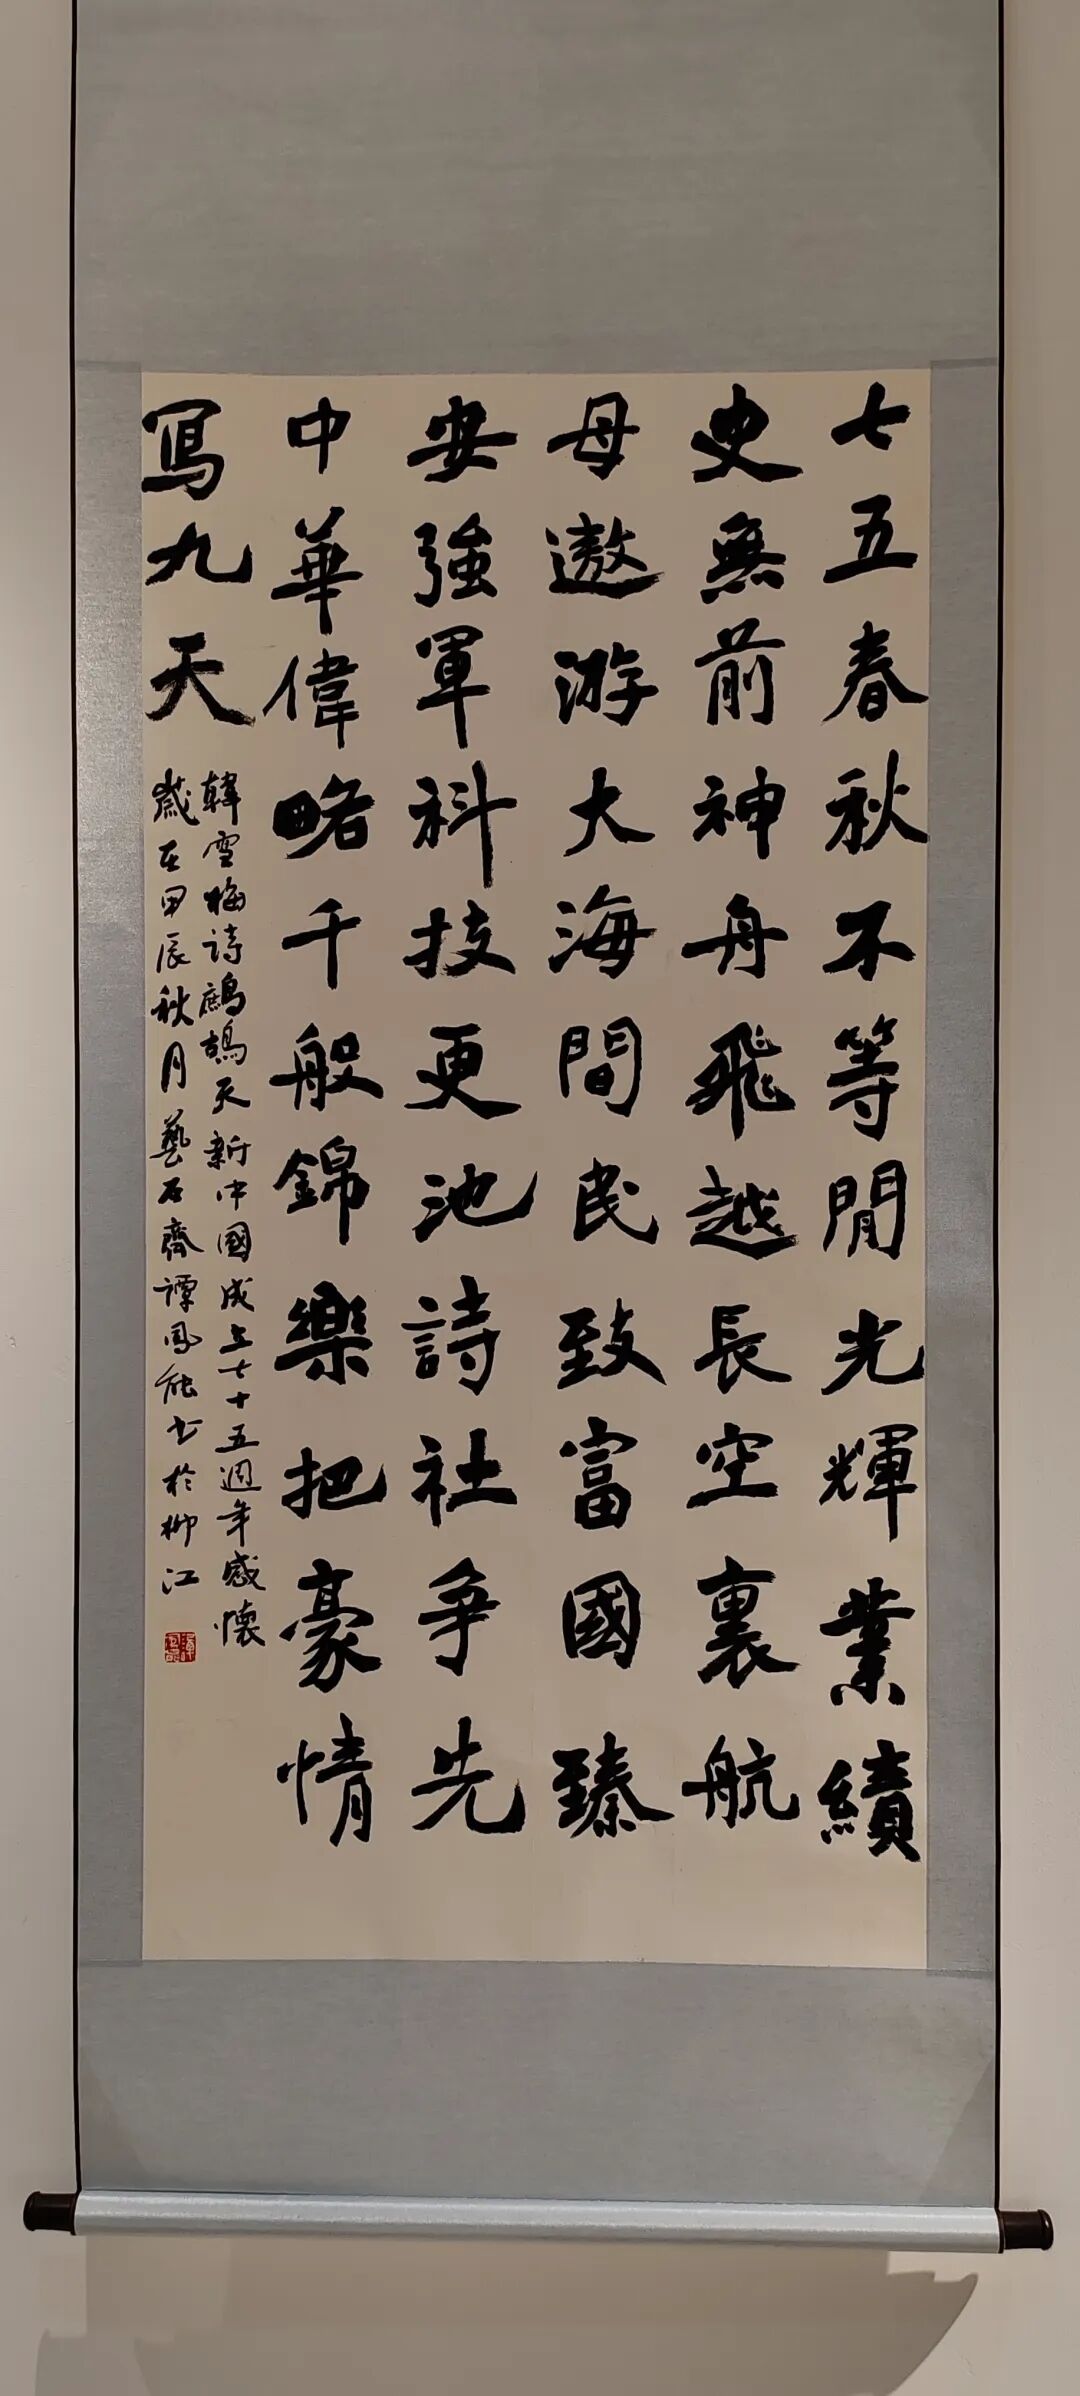 七五春秋不等閒光輝業績
史無前神舟飛越長空裏航
母遨游大海間民致富國臻
安強軍科技更池詩社爭先
中華偉略千般錦樂把豪情
寫九天
韓雪梅詩鷓鴣天新中國成立七十五週年感懷
歲在甲辰秋月藝石齋譚鳳能书於柳江